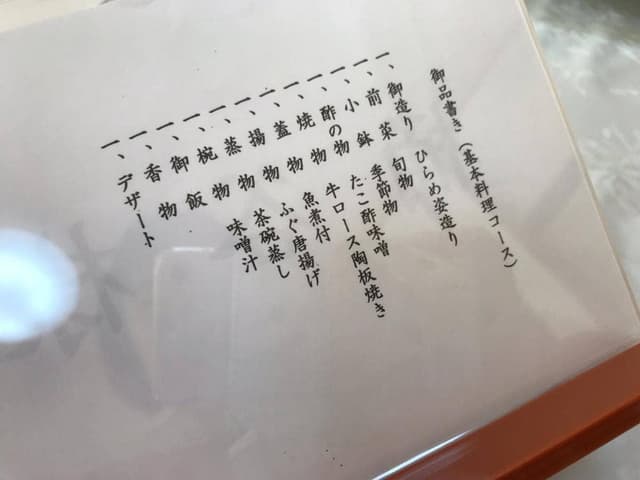 御品書き(基本料理コース)
一、御造り ひらめ姿造り
一、前菜 旬物
一、小鉢 季節物
一、酢の物 たこ酢味噌
一、焼物 牛ロース陶板焼き
一、蓋物 魚煮付
一、揚物 ふぐ唐揚げ
一、蒸物 茶碗蒸し
一、椀物 味噌汁
一、御飯
一、香物
一、デザート